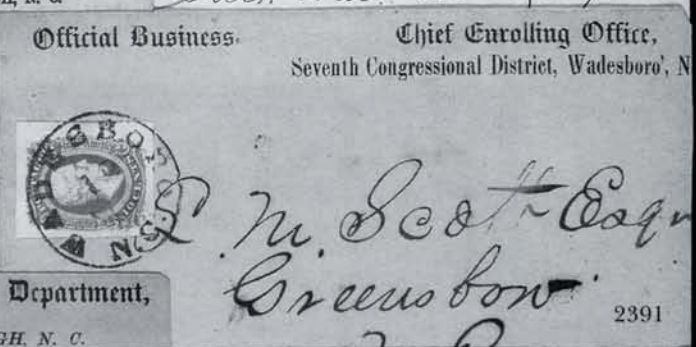 Official Business.
Chief Enrolling Office,
Seventh Congressional District, Wadesboro', N
WADESBORO N
L. M. Scott Esqr
Greensboro
Department,
GH, N. C.
2391